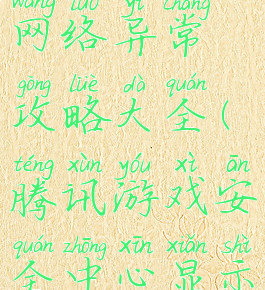 wǎng luò yì cháng
网络异常
gōng lüè dà quán
攻略大全(
téng xùn yóu xì ān
腾讯游戏安
quán zhōng xīn xiǎn shì
全中心显示